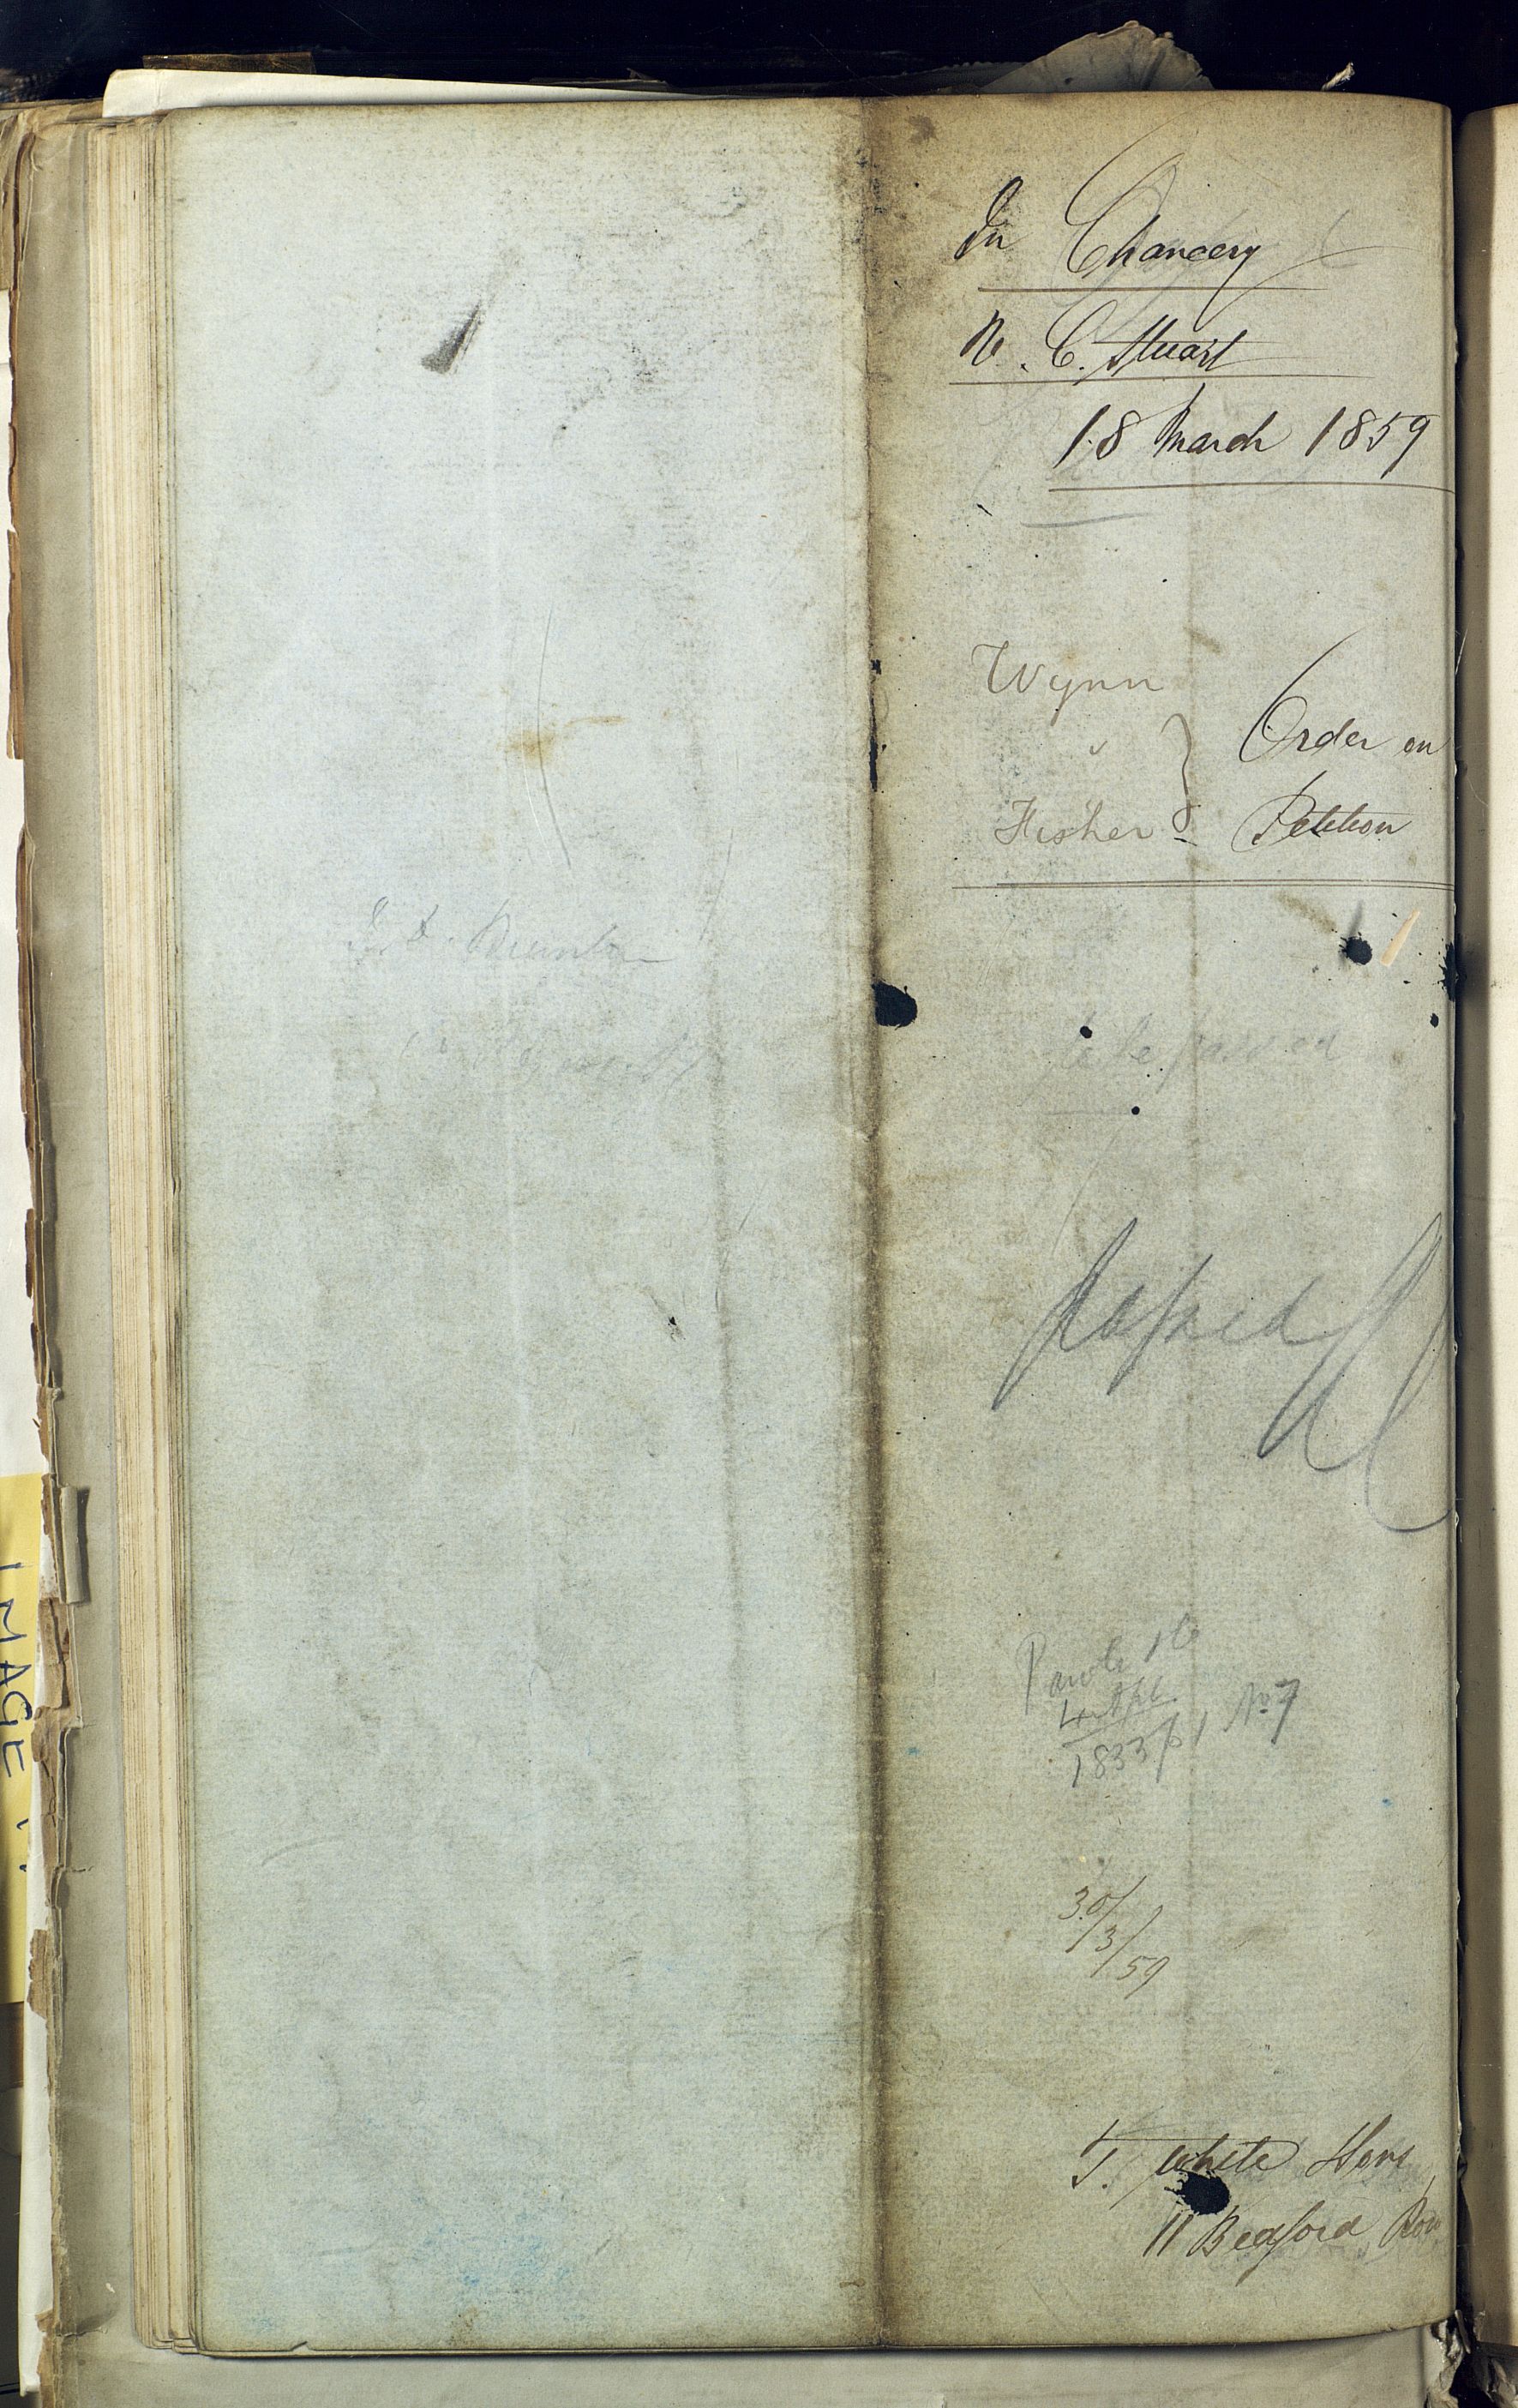 In Chancery
V. C. Stuart
18 March 1859
Wynn
v
Fisher
Order on
Petition
to be passed
passed
4 Apl
1833 No 7
30/3/59
T. White
11 Bedford Row
IMAGE